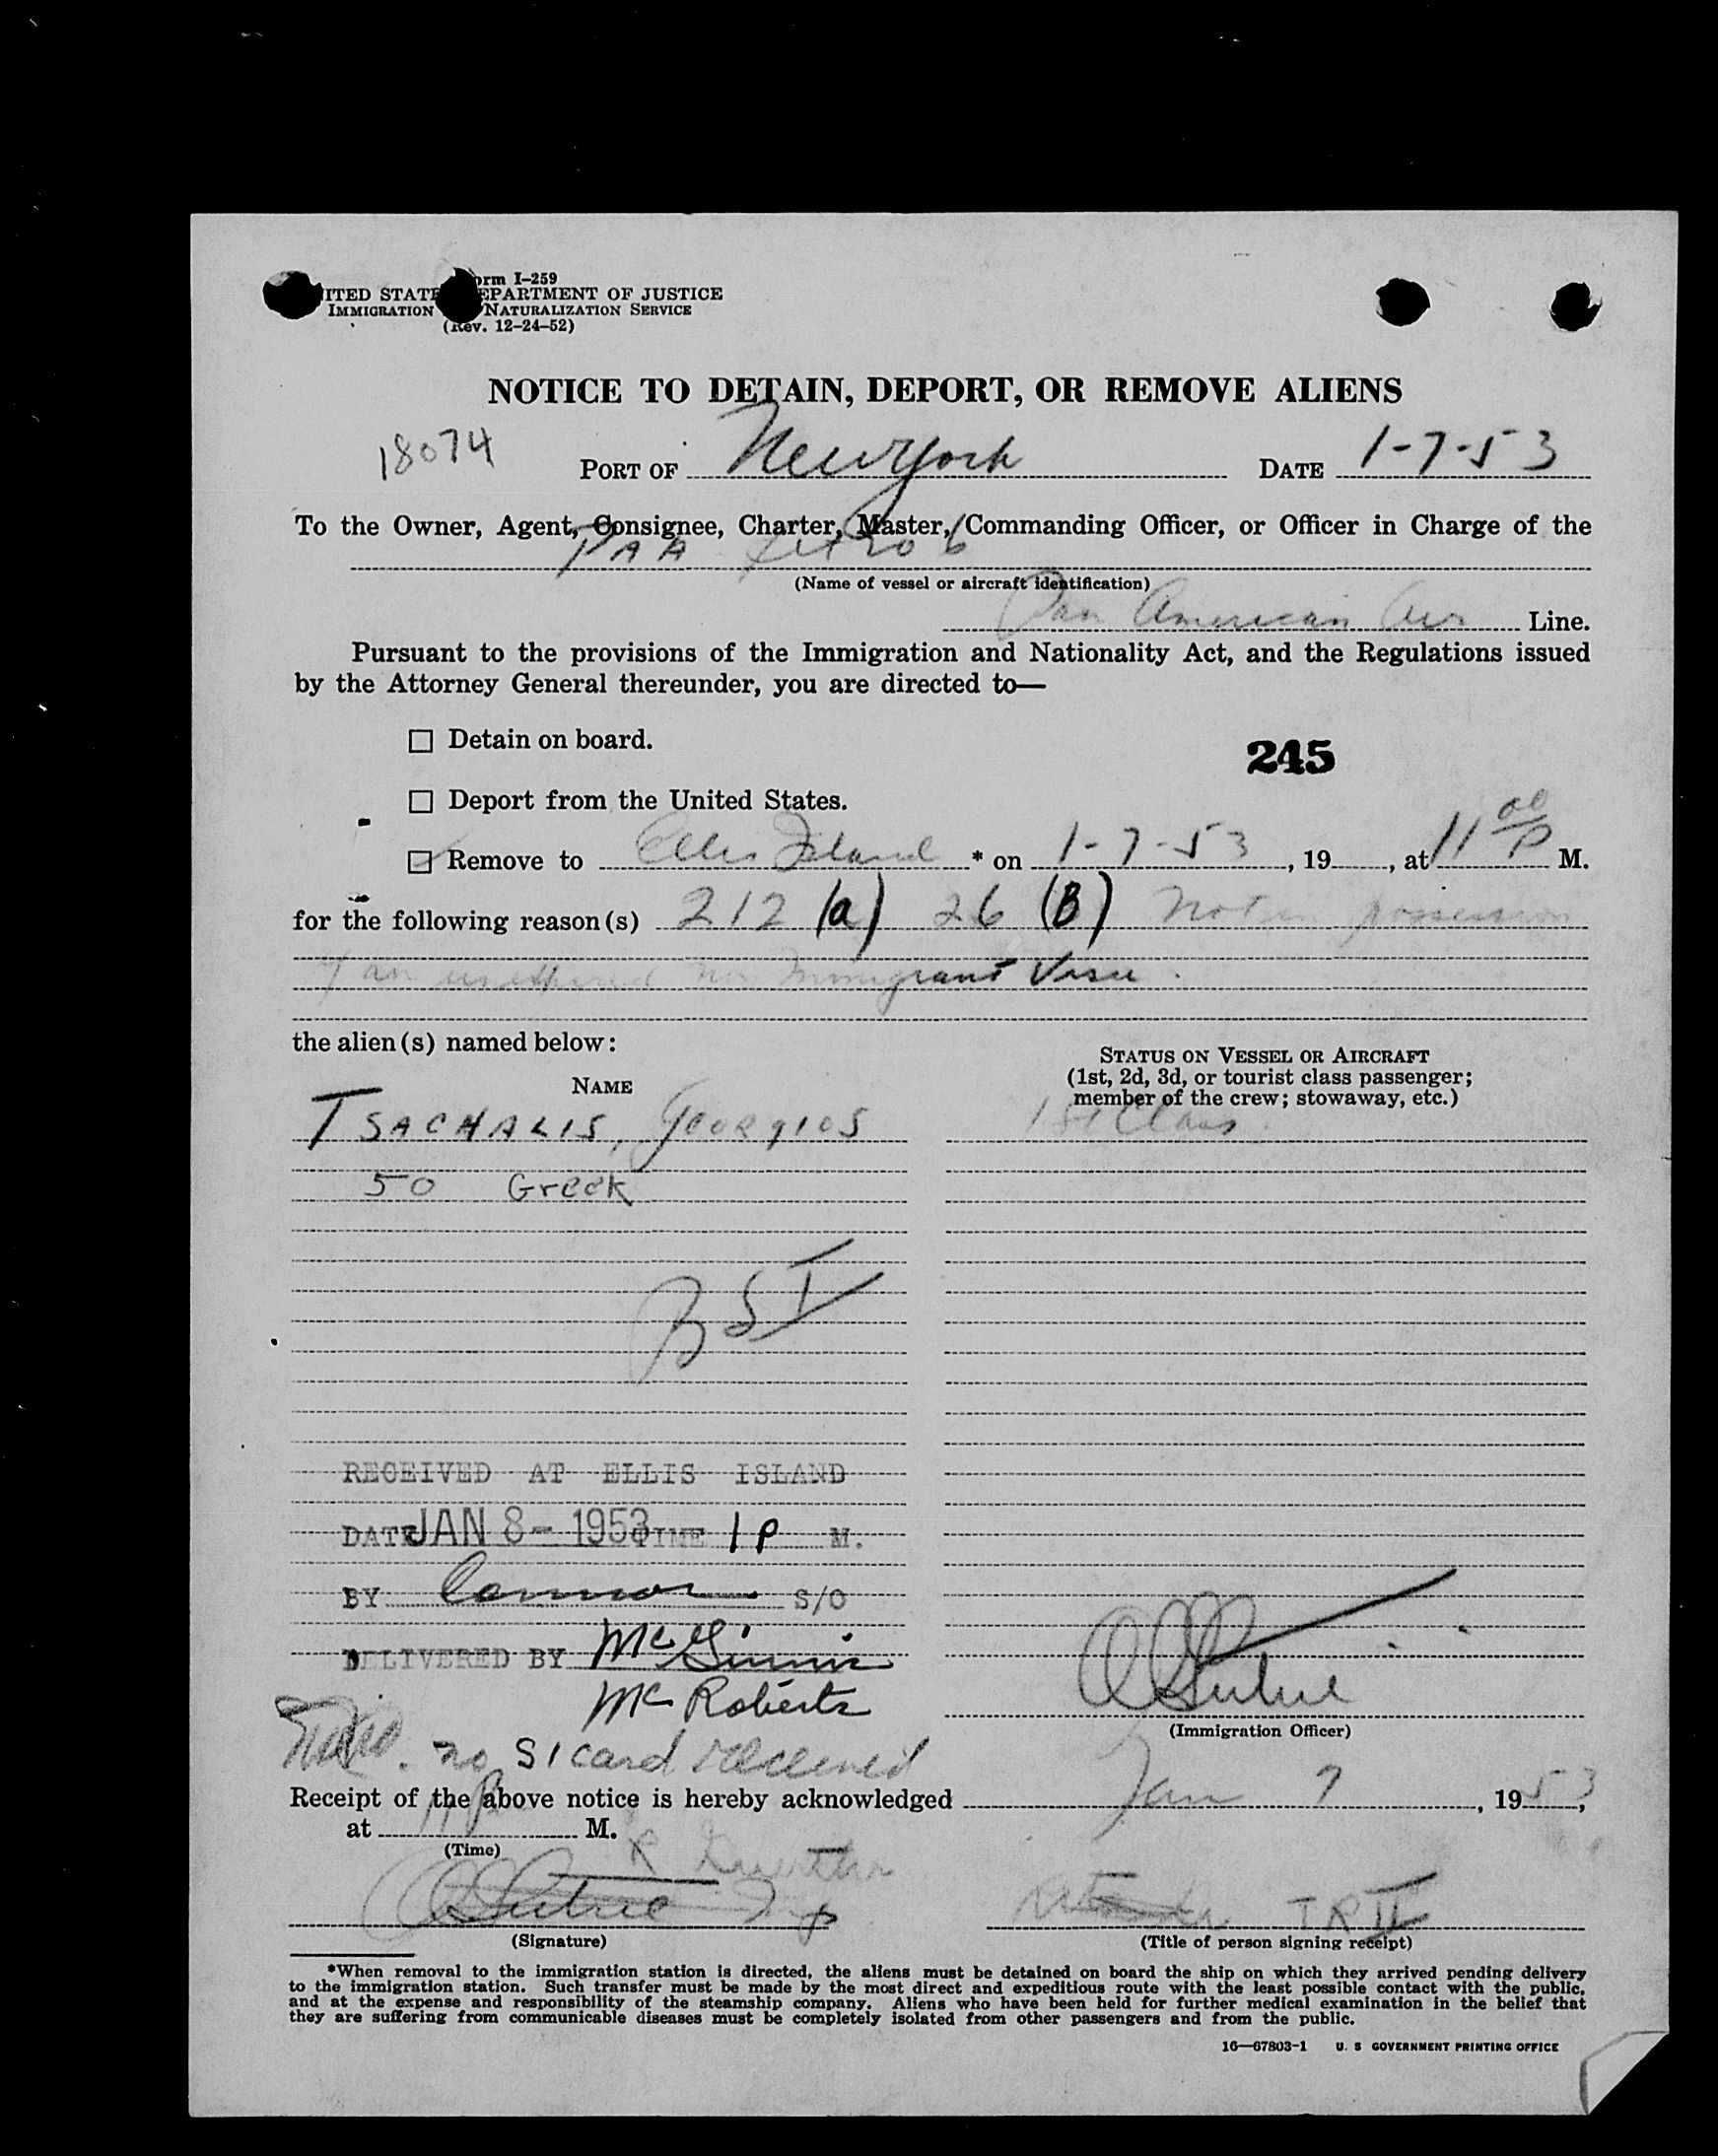 Form I-259
UNITED STATES DEPARTMENT OF JUSTICE
IMMIGRATION NATURALIZATION SERVICE
(Rev. 12-24-52)
NOTICE TO DETAIN, DEPORT, OR REMOVE ALIENS
18074 PORT OF New York DATE 1-7-53
To the Owner, Agent, Consignee, Charter, Master, Commanding Officer, or Officer in Charge of the
PAA
(Name of vessel or aircraft identification)
Pan American Air Line.
Pursuant to the provisions of the Immigration and Nationality Act, and the Regulations issued
by the Attorney General thereunder, you are directed to—
☐ Detain on board.
245
☐ Deport from the United States.
☑ Remove to Ellis Island * on 1-7-53, 19, at 11 00 P M.
for the following reason(s) 212 (a) 26 (B) Not in possession
of an unexpired Non Immigrant Visa.
the alien(s) named below:
STATUS ON VESSEL OR AIRCRAFT
(1st, 2d, 3d, or tourist class passenger;
member of the crew; stowaway, etc.)
NAME
TSACHALIS, Georgios 1st Class
50 Greek
BSI
RECEIVED AT ELLIS ISLAND
DATE JAN 8 - 1953 TIME 1 P M.
BY Connor S/O
DELIVERED BY McGinnis
McRoberts
(Immigration Officer)
no S I card received
Receipt of the above notice is hereby acknowledged Jan 7, 1953,
at 11 P M.
(Time)
TR II
(Signature) (Title of person signing receipt)
*When removal to the immigration station is directed, the aliens must be detained on board the ship on which they arrived pending delivery
to the immigration station. Such transfer must be made by the most direct and expeditious route with the least possible contact with the public,
and at the expense and responsibility of the steamship company. Aliens who have been held for further medical examination in the belief that
they are suffering from communicable diseases must be completely isolated from other passengers and from the public.
16—67803-1 U. S GOVERNMENT PRINTING OFFICE